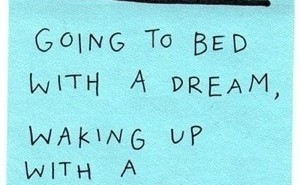 GOING TO BED
WITH A DREAM,
WAKING UP
WITH A